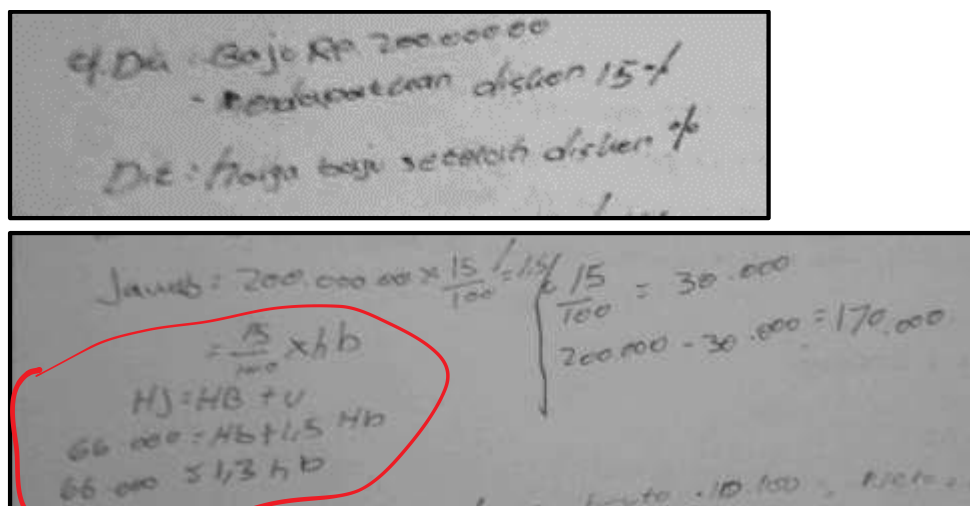 Dik : Baju Rp. 200.000.00
- Mendapatkan diskon 15%
Dit : harga baju setelah diskon %
Jawab : 200.000.00 x 15/100 = 1,5/
= 15/100 x hb
HJ = HB + U
66.000 = Hb + 1,5 Hb
66.000 = 1,3 hb
15/100 = 30.000
200.000 - 30.000 = 170.000
10.100